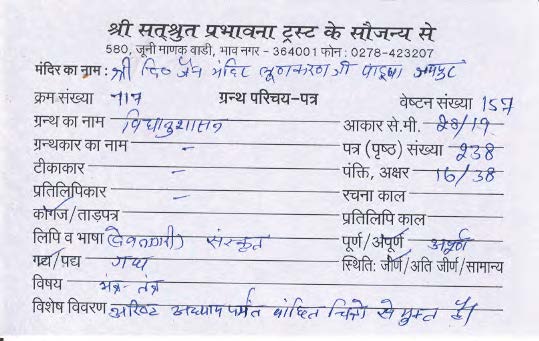 श्री सत्श्रुत प्रभावना ट्रस्ट के सौजन्य से
580, जूनी माणक वाडी, भाव नगर - 364001 फोन : 0278-423207
मंदिर का नाम : श्री दि० जैन मंदिर लूणकरण जी पाड्या जयपुर
क्रम संख्या 717 ग्रन्थ परिचय-पत्र वेष्टन संख्या 157
ग्रन्थ का नाम विद्यानुशासन आकार से.मी. 28/19
ग्रन्थकार का नाम - पत्र (पृष्ठ) संख्या 238
टीकाकार - पंक्ति, अक्षर 16/38
प्रतिलिपिकार - रचना काल
कागज/ताड़पत्र प्रतिलिपि काल
लिपि व भाषा (देवनागरी) संस्कृत पूर्ण/अपूर्ण अपूर्ण
गद्य/पद्य गद्य स्थिति: जीर्ण/अति जीर्ण/सामान्य
विषय मंत्र तंत्र
विशेष विवरण अध्याय पर्यंत चित्रो से युक्त है।